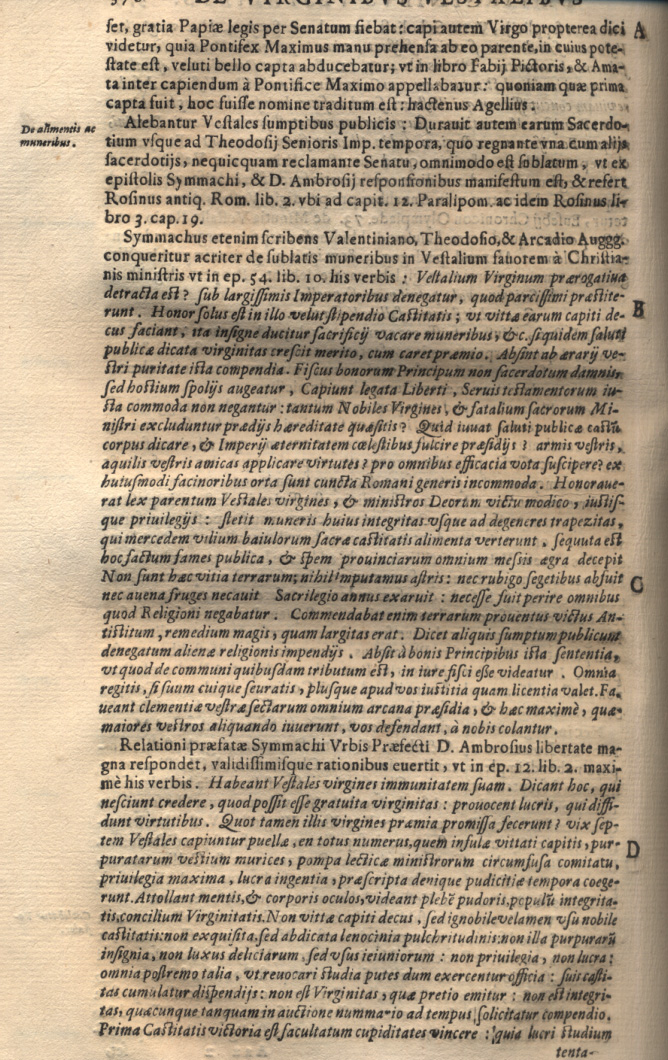 DE VIRGINIBVS VESTALIBVS
set, gratia Papiæ legis per Senatum fiebat: capi autem Virgo propterea dici A
videtur, quia Pontifex Maximus manu prehensa ab eo parente, in cuius pote-
state est, veluti bello capta abducebatur; vt in libro Fabij Pictoris, & Ama-
ta inter capiendum à Pontifice Maximo appellabatur: quoniam quæ prima
capta fuit, hoc fuisse nomine traditum est: hactenus Agellius.
De alimentis ac
muneribus.
Alebantur Vestales sumptibus publicis: Durauit autem earum Sacerdo-
tium vsque ad Theodosij Senioris Imp. tempora, quo regnante vna cum alijs
sacerdotijs, nequicquam reclamante Senatu, omnimodo est sublatum, vt ex
epistolis Symmachi, & D. Ambrosij responsionibus manifestum est, & refert
Rosinus antiq. Rom. lib. 2. vbi ad capit. 12. Paralipom. ac idem Rosinus li-
bro 3. cap. 19.
Symmachus etenim scribens Valentiniano, Theodosio, & Arcadio Auggg.
conqueritur acriter de sublatis muneribus in Vestalium fauorem à Christia-
nis ministris vt in ep. 54. lib. 10. his verbis: Vestalium Virginum prærogatiua
detracta est? sub largissimis Imperatoribus denegatur, quod parcissimi præstite-
runt. Honor solus est in illo velut stipendio Castitatis; vt vittæ earum capiti de- B
cus faciant, ita insigne ducitur sacrificij vacare muneribus, &c. siquidem saluti
publicæ dicata virginitas crescit merito, cum caret præmio. Absint ab ærarij ve-
stri puritate ista compendia. Fiscus bonorum Principum non sacerdotum damnis,
sed hostium spolijs augeatur, Capiunt legata Liberti, Seruis testamentorum iu-
sta commoda non negantur: tantum Nobiles Virgines, & fatalium sacrorum Mi-
nistri excluduntur prædijs hæreditate quæsitis? Quid iuuat saluti publicæ castū
corpus dicare, & Imperij æternitatem cœlestibus fulcire præsidijs? armis vestris,
aquilis vestris amicas applicare virtutes? pro omnibus efficacia vota suscipere? ex
huiusmodi facinoribus orta sunt cuncta Romani generis incommoda. Honoraue-
rat lex parentum Vestales virgines, & ministros Deorum victu modico, iustis-
que priuilegijs: stetit muneris huius integritas vsque ad degeneres trapezitas,
qui mercedem vilium baiulorum sacræ castitatis alimenta verterunt. sequuta est
hoc factum fames publica, & spem prouinciarum omnium messis ægra decepit
Non sunt hæc vitia terrarum; nihil imputamus astris: nec rubigo segetibus absuit C
nec auena fruges necauit Sacrilegio annus exaruit: necesse fuit perire omnibus
quod Religioni negabatur. Commendabat enim terrarum prouentus victus An-
tistitum, remedium magis, quam largitas erat. Dicet aliquis sumptum publicum
denegatum alienæ religionis impendijs. Absit à bonis Principibus ista sententia,
vt quod de communi quibusdam tributum est, in iure fisci esse videatur. Omnia
regitis, si suum cuique seuratis, plusque apud vos iustitia quam licentia valet. Fa.
ueant clementiæ vestræ sectarum omnium arcana præsidia, & hæc maximè, quæ
maiores vestros aliquando iuuerunt, vos defendant, à nobis colantur.
Relationi præfatæ Symmachi Vrbis Præfecti D. Ambrosius libertate ma-
gna respondet, validissimisque rationibus euertit, vt in ep. 12. lib. 2. maxi-
mè his verbis. Habeant Vestales virgines immunitatem suam. Dicant hoc, qui
nesciunt credere, quod possit esse gratuita virginitas: prouocent lucris, qui diffi-
dunt virtutibus. Quot tamen illis virgines præmia promissa fecerunt? vix sep-
tem Vestales capiuntur puellæ, en totus numerus, quem infulæ vittati capitis, pur- D
puratarum vestium murices, pompa lecticæ ministrorum circumfusa comitatu,
priuilegia maxima, lucra ingentia, præscripta denique pudicitiæ tempora coege-
runt. Attollant mentis, & corporis oculos, videant plebē pudoris, populū integrita-
tis, concilium Virginitatis. Non vittæ capiti decus, sed ignobile velamen vsu nobile
castitatis: non exquisita, sed abdicata lenocinia pulchritudinis: non illa purpurarū
insignia, non luxus deliciarum, sed vsus ieiuniorum: non priuilegia, non lucra:
omnia postremo talia, vt reuocari studia putes dum exercentur officia: suis casti-
tas cumulatur dispendijs: non est Virginitas, quæ pretio emitur: non est integri-
tas, quæcunque tanquam in auctione nummario ad tempus solicitatur compendio.
Prima Castitatis victoria est facultatum cupiditates vincere: quia lucri studium
tenta-